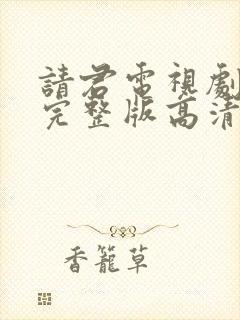 請君電視劇
完整版高清
香籠草